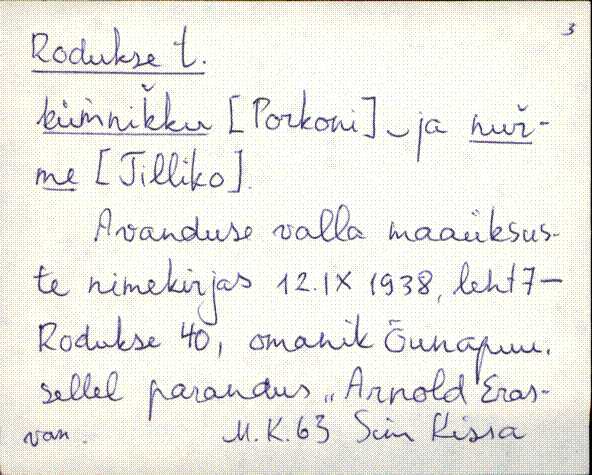 3
Rodukse t.
kümnikku [Porkoni] ja nur̆-
me [Tilliko].
Avanduse valla maaüksus-
te nimekirjas 12.IX 1938, leht 7 –
Rodukse 40, omanik Õunapuu.
sellel parandus „Arnold Eras-
van.
M.K.63 Sim Kissa